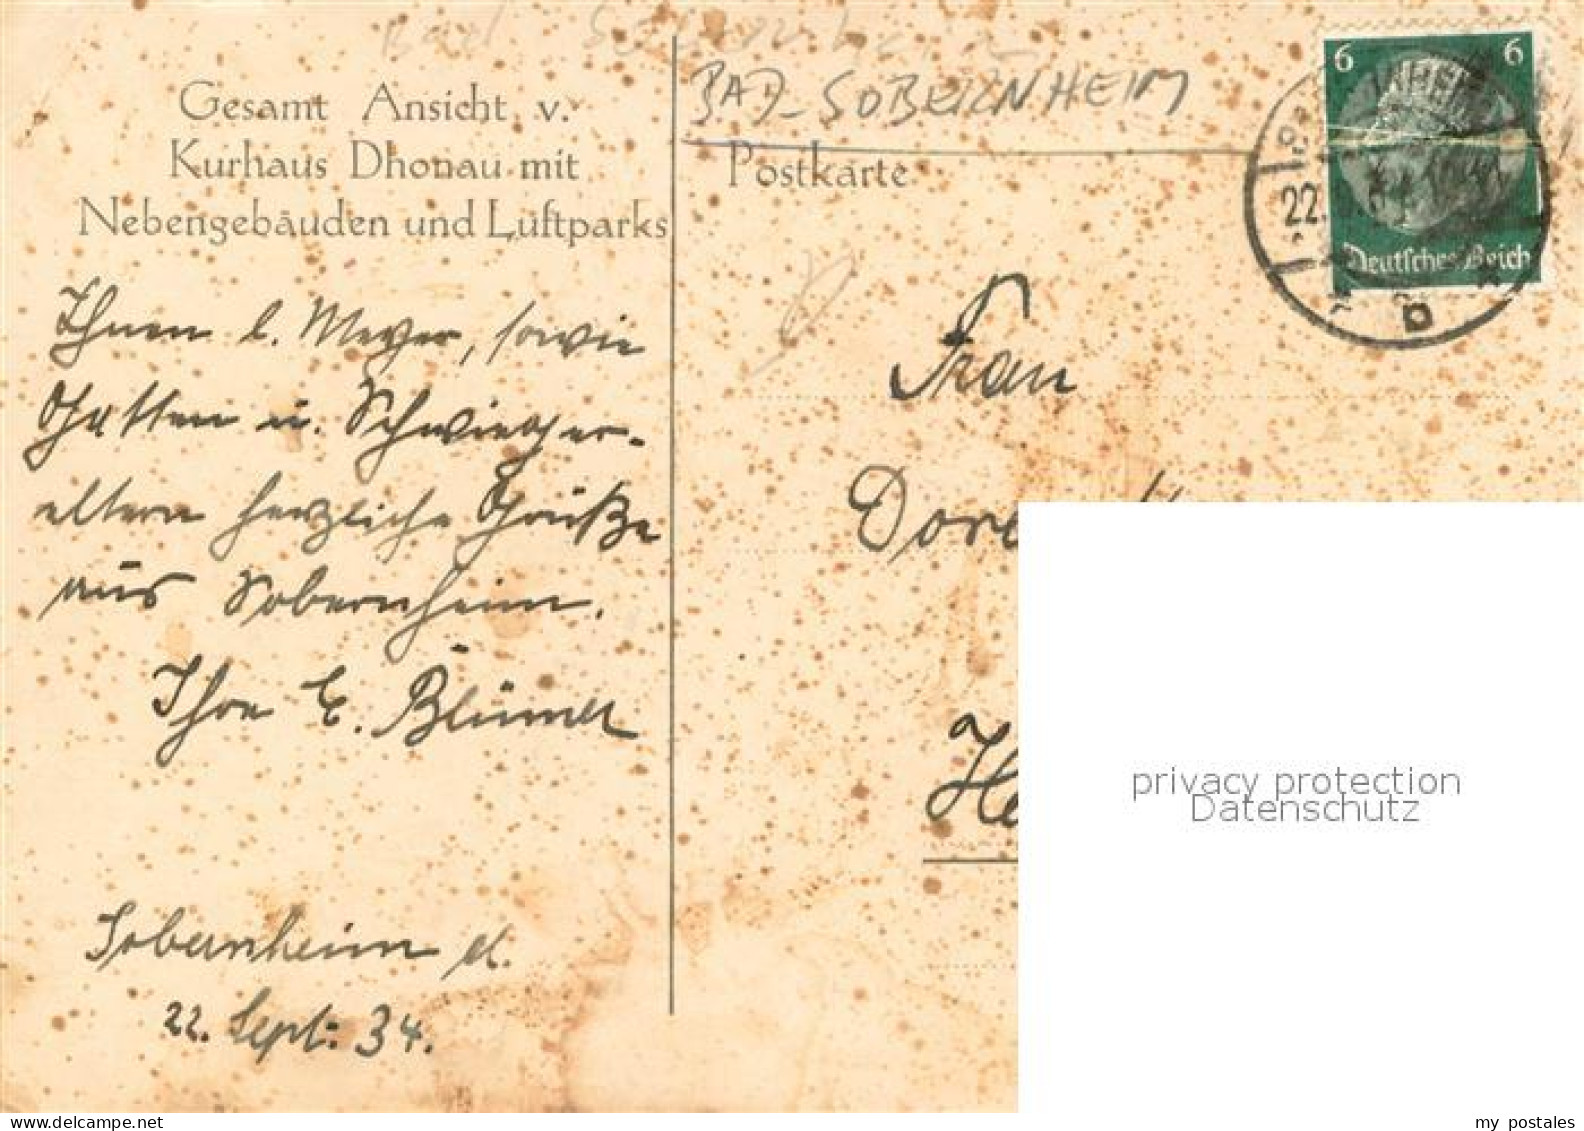 BAD-SOBERNHEIM
Gesamt Ansicht v.
Kurhaus Dhonau mit
Nebengebäuden und Luftparks
Postkarte
6 6
Deutsches Reich
22.
b
Ihnen l. Meyer, sowie
Gatten u. Schwieger-
eltern herzliche Grüße
aus Sobernheim.
Ihre E. Blümel
Sobernheim d.
22. Sept. 34.
Frau
Dore
He
privacy protection
Datenschutz
my postales